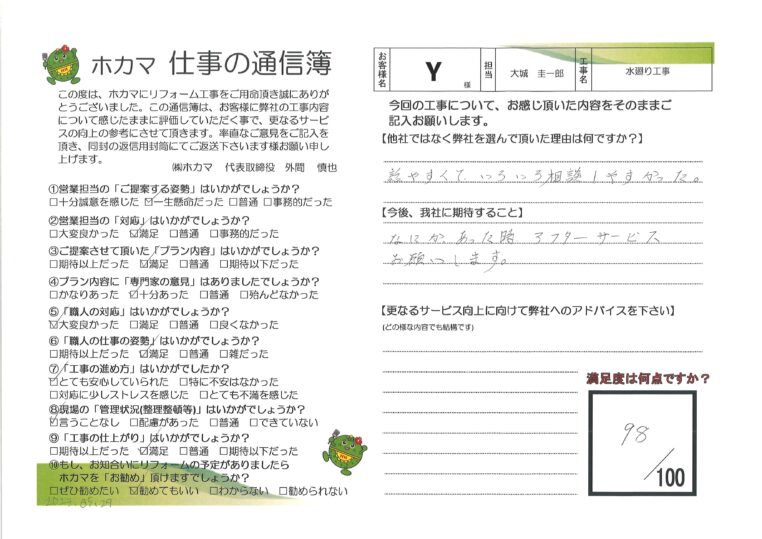 ホカマ 仕事の通信簿
この度は、ホカマにリフォーム工事をご用命頂き誠にありが
とうございました。この通信簿は、お客様に弊社の工事内容
について感じたままに評価していただく事で、更なるサービ
スの向上の参考にさせて頂きます。率直なご意見をご記入を
頂き、同封の返信用封筒にてご返送下さいます様お願い申し
上げます。
㈱ホカマ 代表取締役 外間 慎也
①営業担当の「ご提案する姿勢」はいかがでしょうか?
□十分誠意を感じた ☑一生懸命だった □普通 □事務的だった
②営業担当の「対応」はいかがでしょうか?
□大変良かった ☑満足 □普通 □事務的だった
③ご提案させて頂いた「プラン内容」はいかがでしょうか?
□期待以上だった ☑満足 □普通 □期待以下だった
④プラン内容に「専門家の意見」はありましたでしょうか?
□かなりあった ☑十分あった □普通 □殆んどなかった
⑤「職人の対応」はいかがでしょうか?
☑大変良かった □満足 □普通 □良くなかった
⑥「職人の仕事の姿勢」はいかがでしょうか?
□期待以上だった ☑満足 □普通 □雑だった
⑦「工事の進め方」はいかがでしたか?
☑とても安心していられた □特に不安はなかった
□対応に少しストレスを感じた □とても不満を感じた
⑧現場の「管理状況(整理整頓等)」はいかがでしょうか?
☑言うことなし □配慮があった □普通 □できていない
⑨「工事の仕上がり」はいかがでしょうか?
□期待以上だった ☑満足 □普通 □期待以下だった
⑩もし、お知合いにリフォームの予定がありましたら
ホカマを「お勧め」頂けますでしょうか?
□ぜひ勧めたい ☑勧めてもいい □わからない □勧められない
お客様名 Y 様 担当 大城 圭一郎 工事名 水廻り工事
今回の工事について、お感じ頂いた内容をそのままご
記入お願いします。
【他社ではなく弊社を選んで頂いた理由は何ですか?】
やすくて いろいろ相談しやすかった。
【今後、我社に期待すること】
なにか あった時 アフターサービス
お願いします。
【更なるサービス向上に向けて弊社へのアドバイスを下さい】
(どの様な内容でも結構です)
満足度は何点ですか?
98
/100